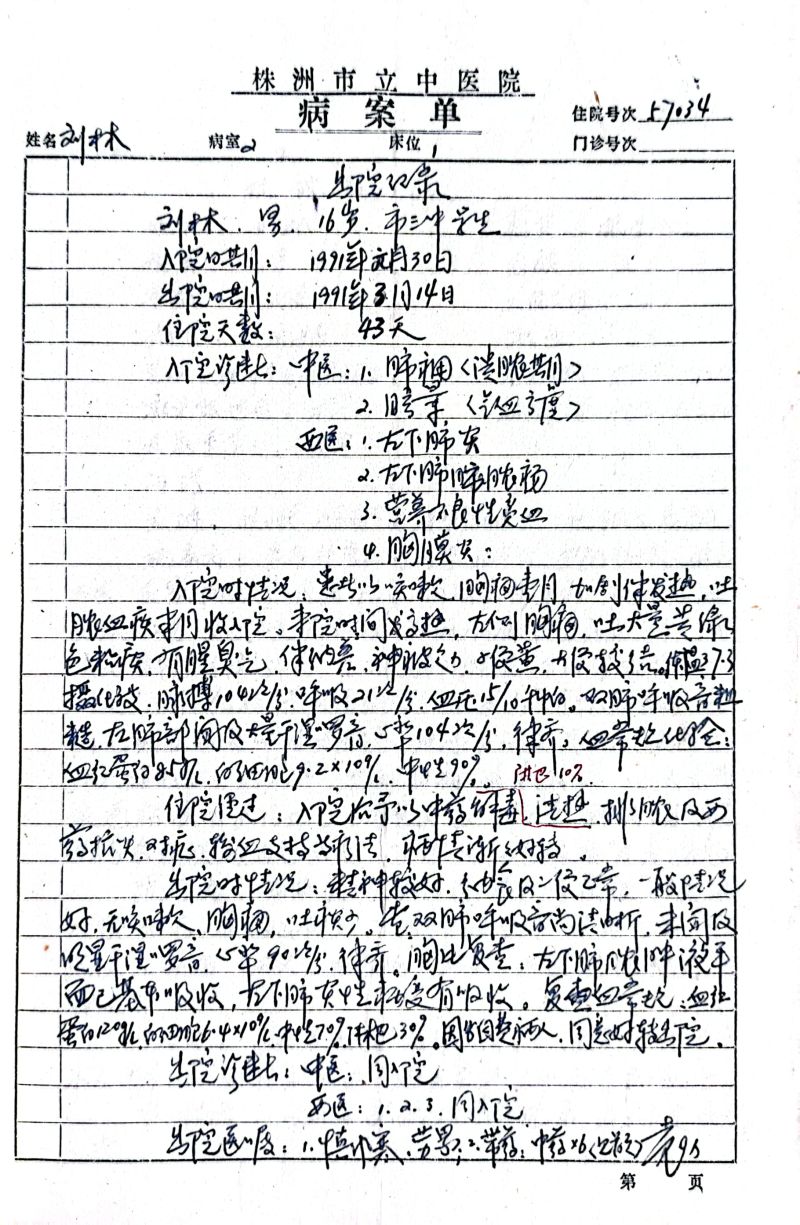 株洲市立中医院
病案单
住院号次 57034
姓名 刘林 病室 2 床位 1 门诊号次
出院记录
刘林、男、16岁、市三中学生
入院日期: 1991年元月30日
出院日期: 1991年3月14日
住院天数: 43天
入院诊断: 中医: 1. 肺痈〈溃脓期〉
2. 〈气血亏虚〉
西医: 1. 左下肺炎
2. 左下肺脓疡
3. 营养不良性贫血
4. 胸膜炎:
入院时情况: 患者以咳嗽、胸痛 月, 加剧伴发热, 吐
脓血痰 月收入院。来院时间发高热, 左侧胸痛, 吐大量黄绿
色粘痰, 有腥臭气, 伴纳差, 神疲乏力, 小便黄, 大便较结。体温37.3
摄氏度, 脉搏104次/分, 呼吸21次/分, 血压15/10千帕。双肺呼吸音粗
糙, 左肺部闻及大量干湿啰音, 心率104次/分, 律齐。血常规化验:
血红蛋白85g/L, 白细胞9.2×10⁹/L, 中性90% 淋巴10%.
住院经过: 入院后予以中药解毒, 清热, 排脓及西
药抗炎, 对症, 输血支持等疗法, 病情渐好转。
出院时情况: 精神较好, 纳食及二便正常, 一般情况
好, 无咳嗽, 胸痛, 吐痰少。查: 双肺呼吸音尚清晰, 未闻及
明显干湿啰音, 心率90次/分, 律齐。胸片复查: 左下肺脓肿液平
面已基本吸收, 左下肺炎性病变有吸收。复查血常规: 血红
蛋白120g/L, 白细胞6.4×10⁹/L, 中性70% 淋巴30%。 同意好转出院。
出院诊断: 中医: 同入院
西医: 1. 2. 3. 同入院
出院医嘱: 1. 慎外寒、劳累; 2. 带药: 中药×6
第 页